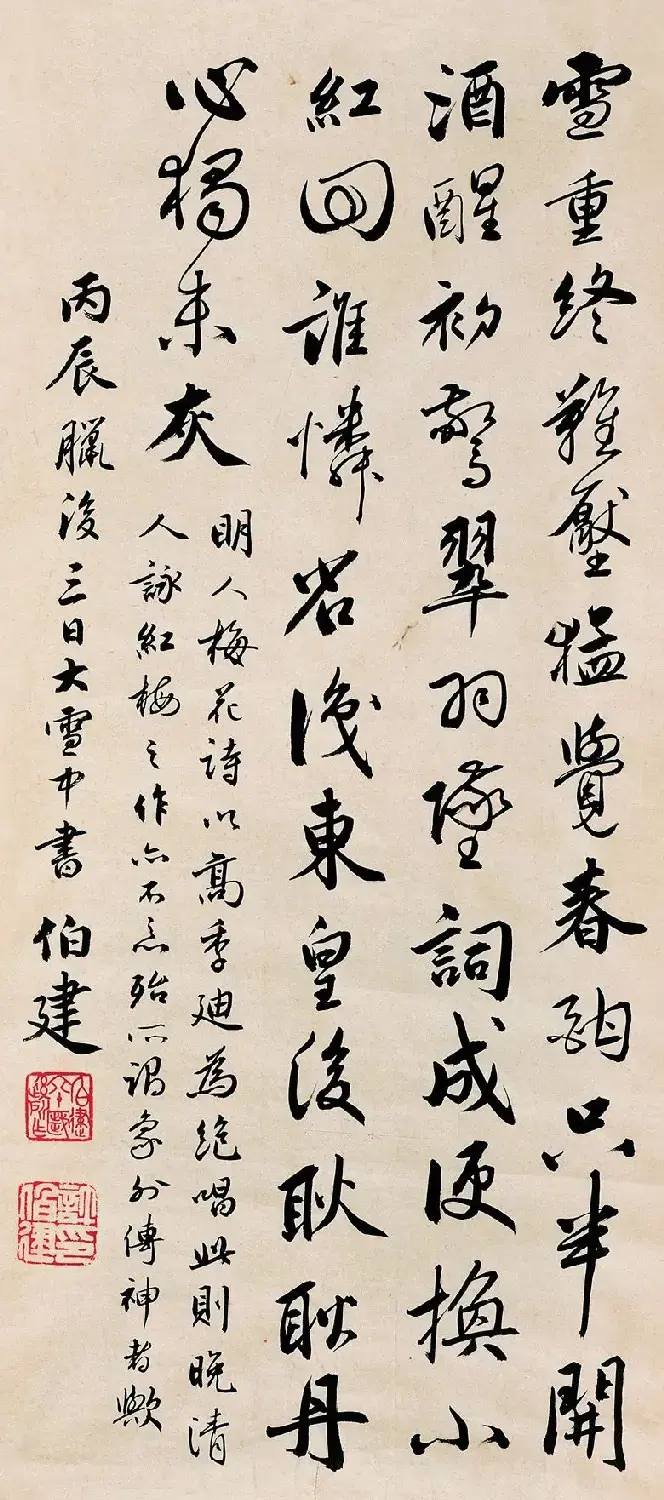 雪重終難壓猛覺春韵只半開
酒醒初驚翠羽墜詞成便換小
紅回誰憐省識東皇後耿耿丹
心獨未灰
明人梅花詩以高季迪為絕唱此則晚清
人詠紅梅之作亦不惡殆所謂象外傳神者歟
丙辰臘後三日大雪中書
伯建